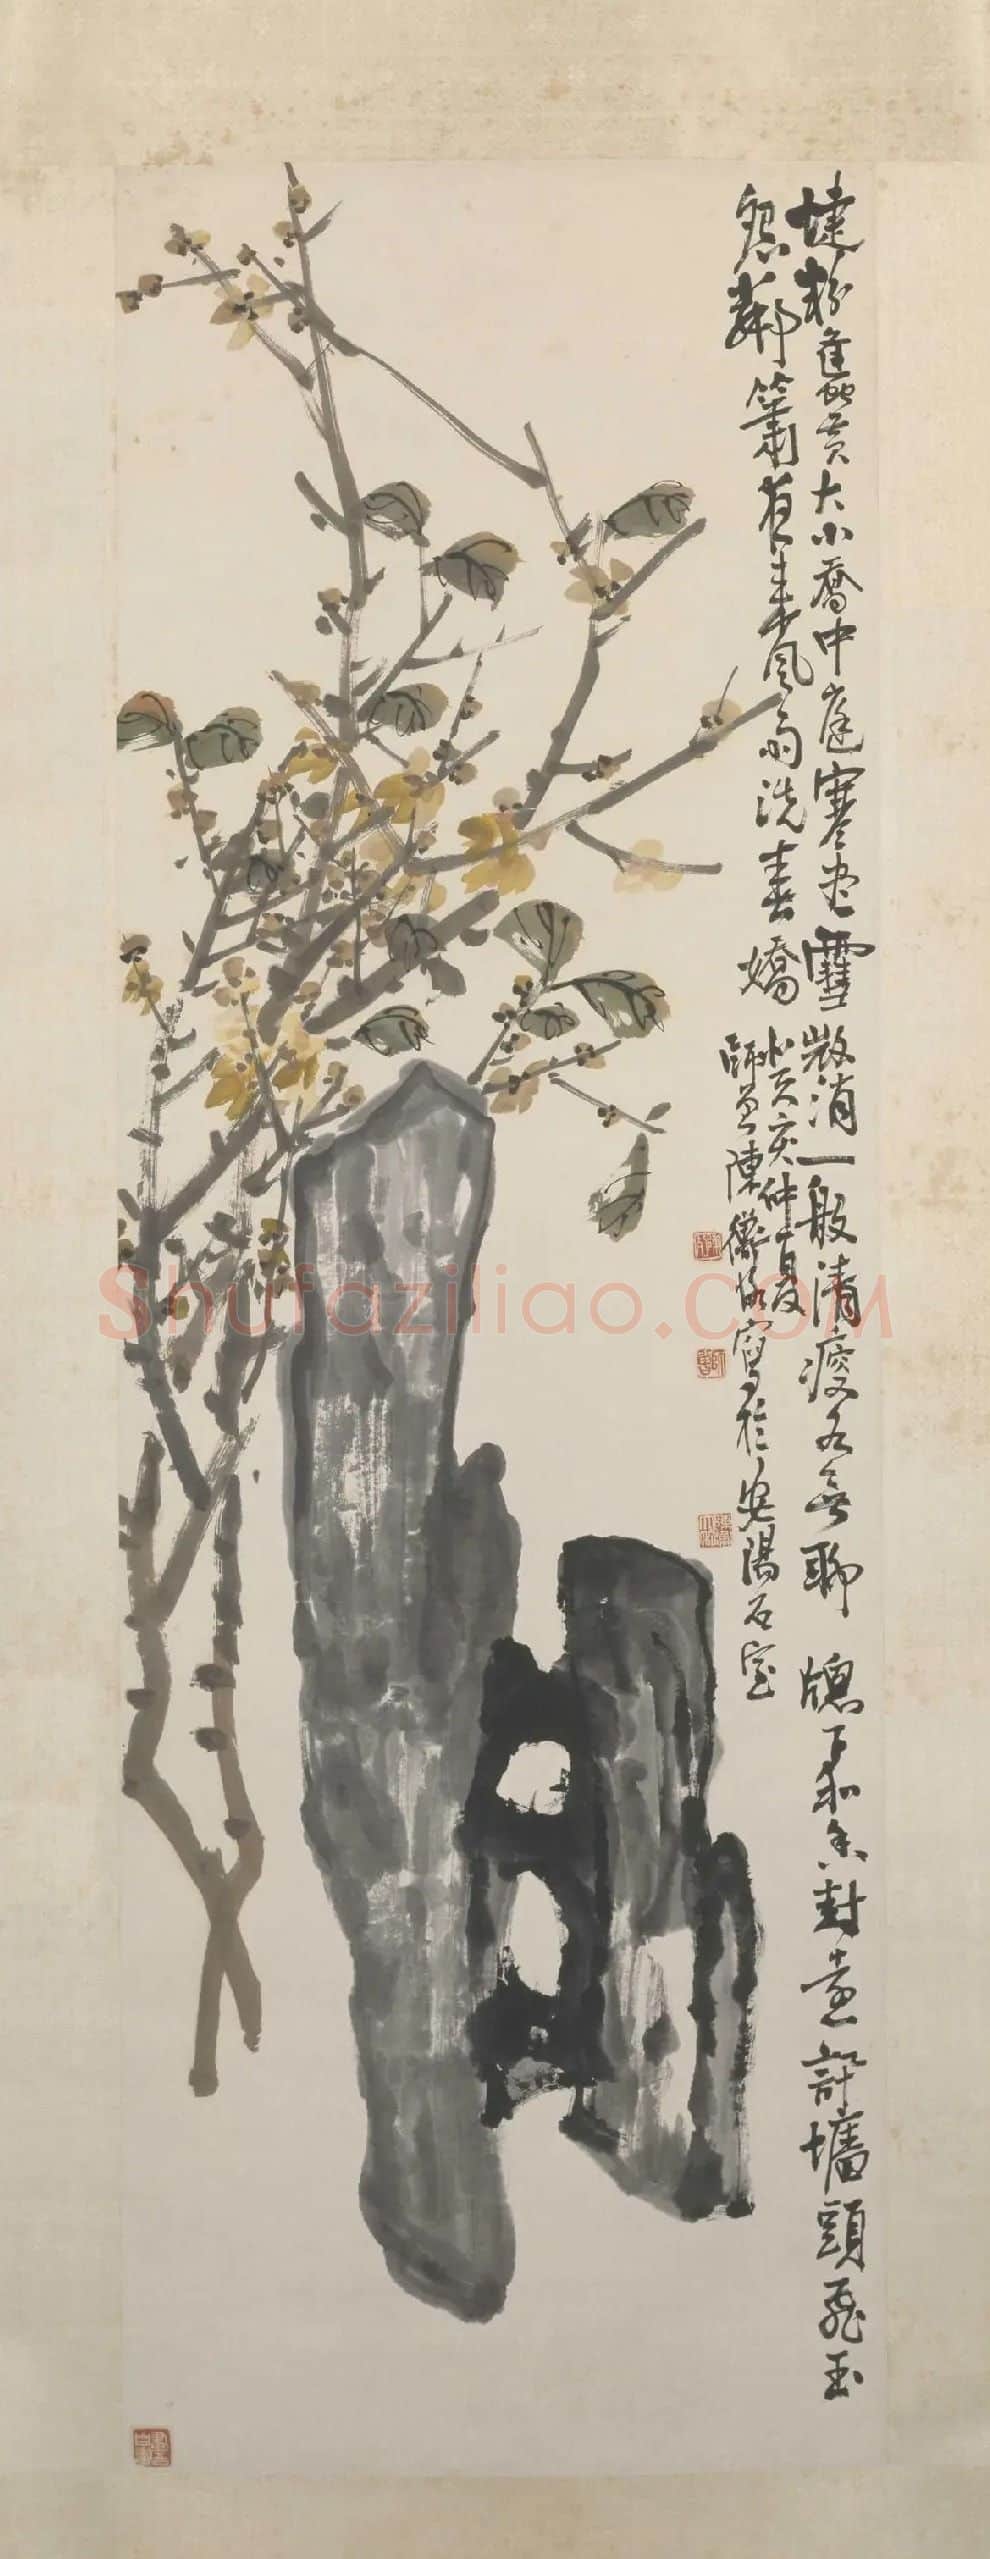 蜨粉蠭黃大小喬中庭寒盡雪微消一般清瘦各無聊 牕下和香封遠訊墻頭飛玉
怨鄰簫夜來風雨洗春嬌
癸亥仲夏
師曾陳衡恪寫於安陽石室
Shufaziliao.com